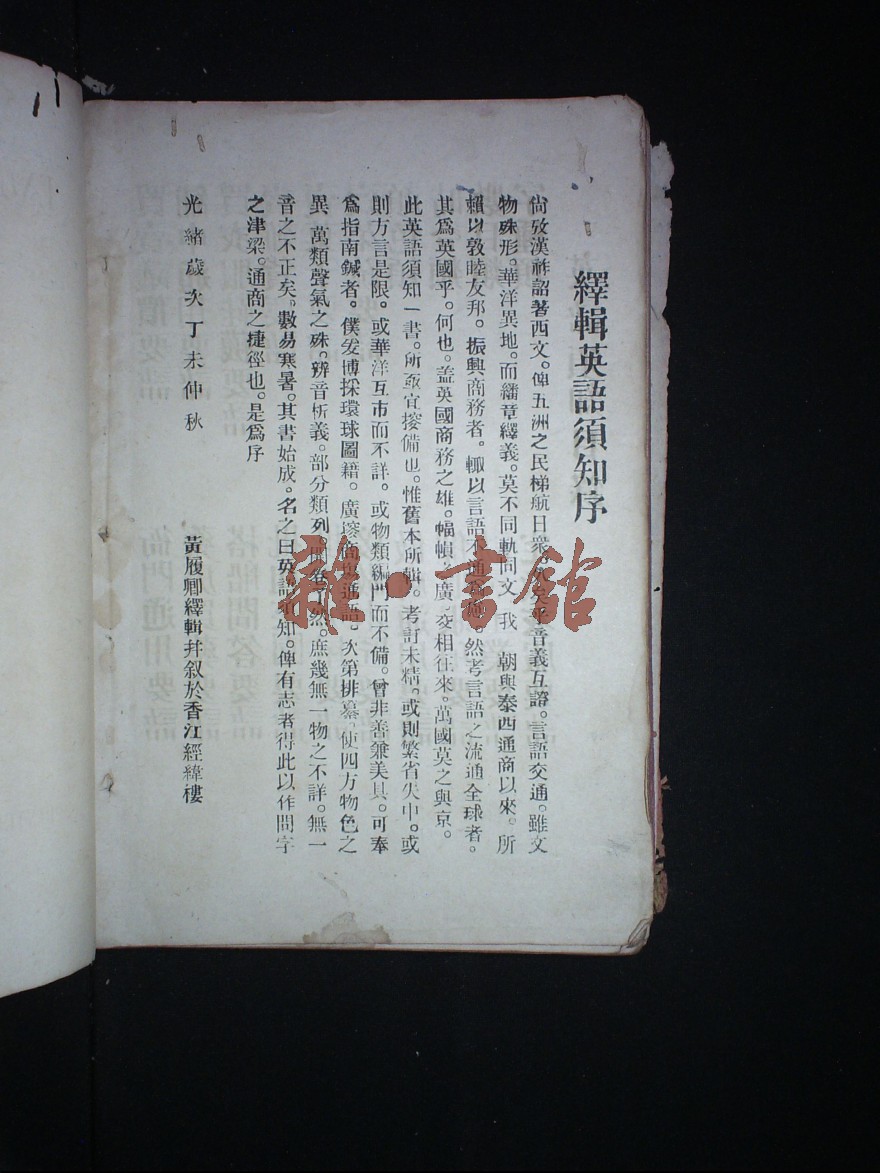 繹輯英語須知序
尙攷漢祚詔著西文。俾五洲之民梯航日衆。音義互諮。言語交通。雖文
物殊形。華洋異地。而繙章繹義。莫不同軌同文。我 朝與泰西通商以來。所
賴以敦睦友邦。振興商務者。輙以言語不通。然考言語之流通全球者。
其爲英國乎。何也。盖英國商務之雄。幅幀之廣。交相往來。萬國莫之與京。
此英語須知一書。所亟宜接備也。惟舊本所輯。考訂未精。或則繁省失中。或
則方言是限。或華洋互市而不詳。或物類編門而不備。曾非善兼美具。可奉
爲指南鍼者。僕爰博採環球圖籍。廣搜商塲通語。次第排纂。使四方物色之
異。萬類聲氣之殊。辨音析義。部分類列。開卷了然。庶幾無一物之不詳。無一
音之不正矣。數易寒暑。其書始成。名之曰英語須知。俾有志者得此以作問字
之津梁。通商之捷徑也。是爲序
光緒歲次丁未仲秋 黃履卿繹輯幷叙於香江經緯樓
雜·書館